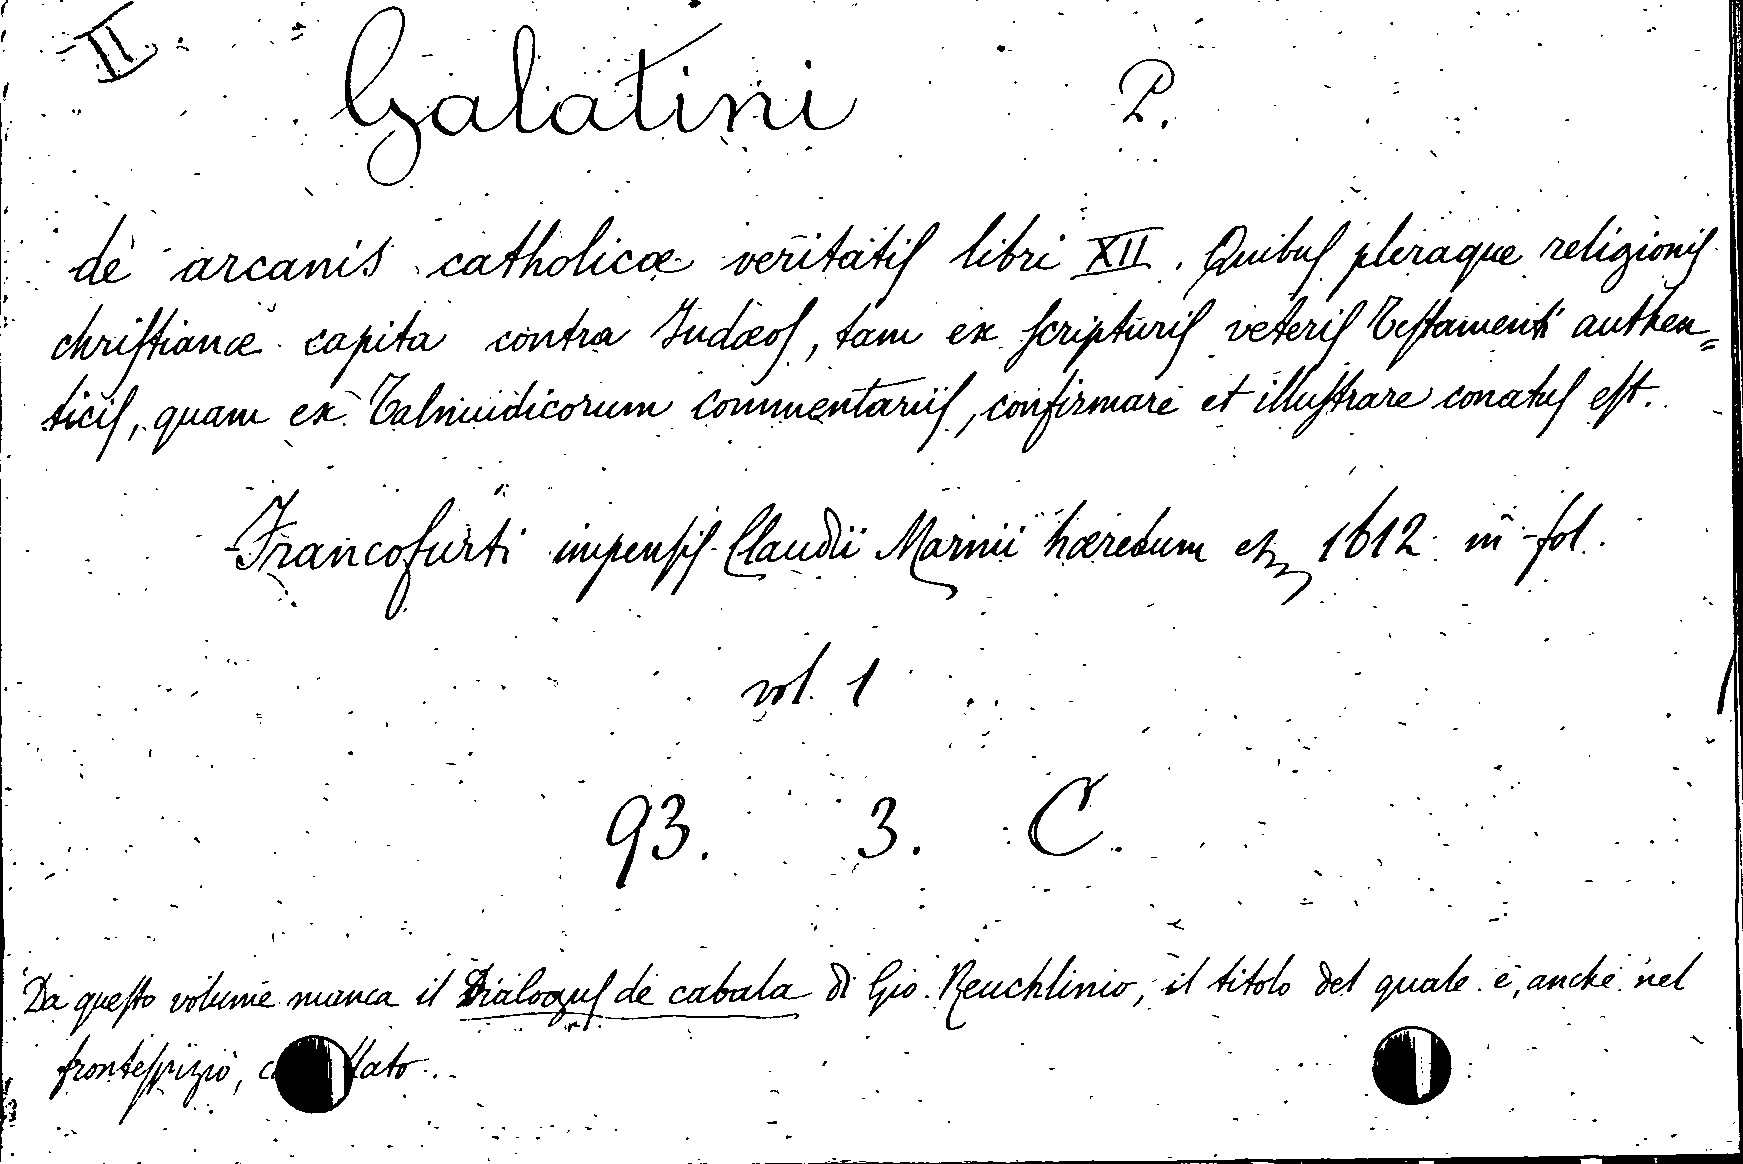 II
Galatini P.
de arcanis catholicæ veritatis libri XII. Quibus pleraque religionis
christianæ capita contra Judæos, tam ex scripturis veteris Testamenti authen=
ticis, quam ex Talmudicorum commentariis, confirmare et illustrare conatus est.
Francofurti impensis Claudii Marnii hæredum etc 1612 in-fol.
vol. 1
93. 3. C.
Da questo volume manca il Dialogus de cabala di Gio. Reuchlinio, il titolo del quale è, anche nel
frontespizio,